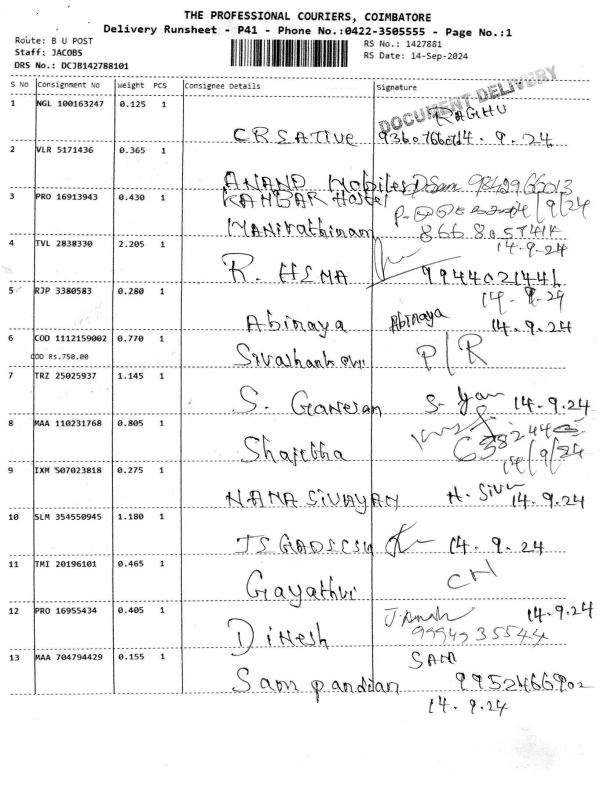 THE PROFESSIONAL COURIERS, COIMBATORE
Delivery Runsheet - P41 - Phone No.:0422-3505555 - Page No.:1
Route: B U POST
RS No.: 1427881
Staff: JACOBS
RS Date: 14-Sep-2024
DRS No.: DCJB142788101
S No Consignment No Weight PCS Consignee Details Signature
DOCUMENT DELIVERY
1 NGL 100163247 0.125 1 RAGHU
CRSATIVE 14.9.24
2 VLR 5171436 0.365 1
ANAND Mobiles
3 PRO 16913943 0.430 1 KAMBAR Hostel
Manirathinam
14.9.24
4 TVL 2838330 2.205 1
R. HEMA 9944021441
14.9.24
5 RJP 3380583 0.280 1
Abinaya Abinaya 14.9.24
6 COD 1112159002 0.770 1
COD Rs.750.00 P/R
7 TRZ 25025937 1.145 1
S. Ganesan 14.9.24
8 MAA 110231768 0.805 1
14/9/24
9 IXM 507023818 0.275 1
NAMASIVAYAM 14.9.24
10 SLM 354550945 1.180 1
14.9.24
11 TMI 20196101 0.465 1
Gayathri CN
12 PRO 16955434 0.405 1 14.9.24
Dinesh
13 MAA 704794429 0.155 1 SAM
Sam pandian 9952466902
14.9.24